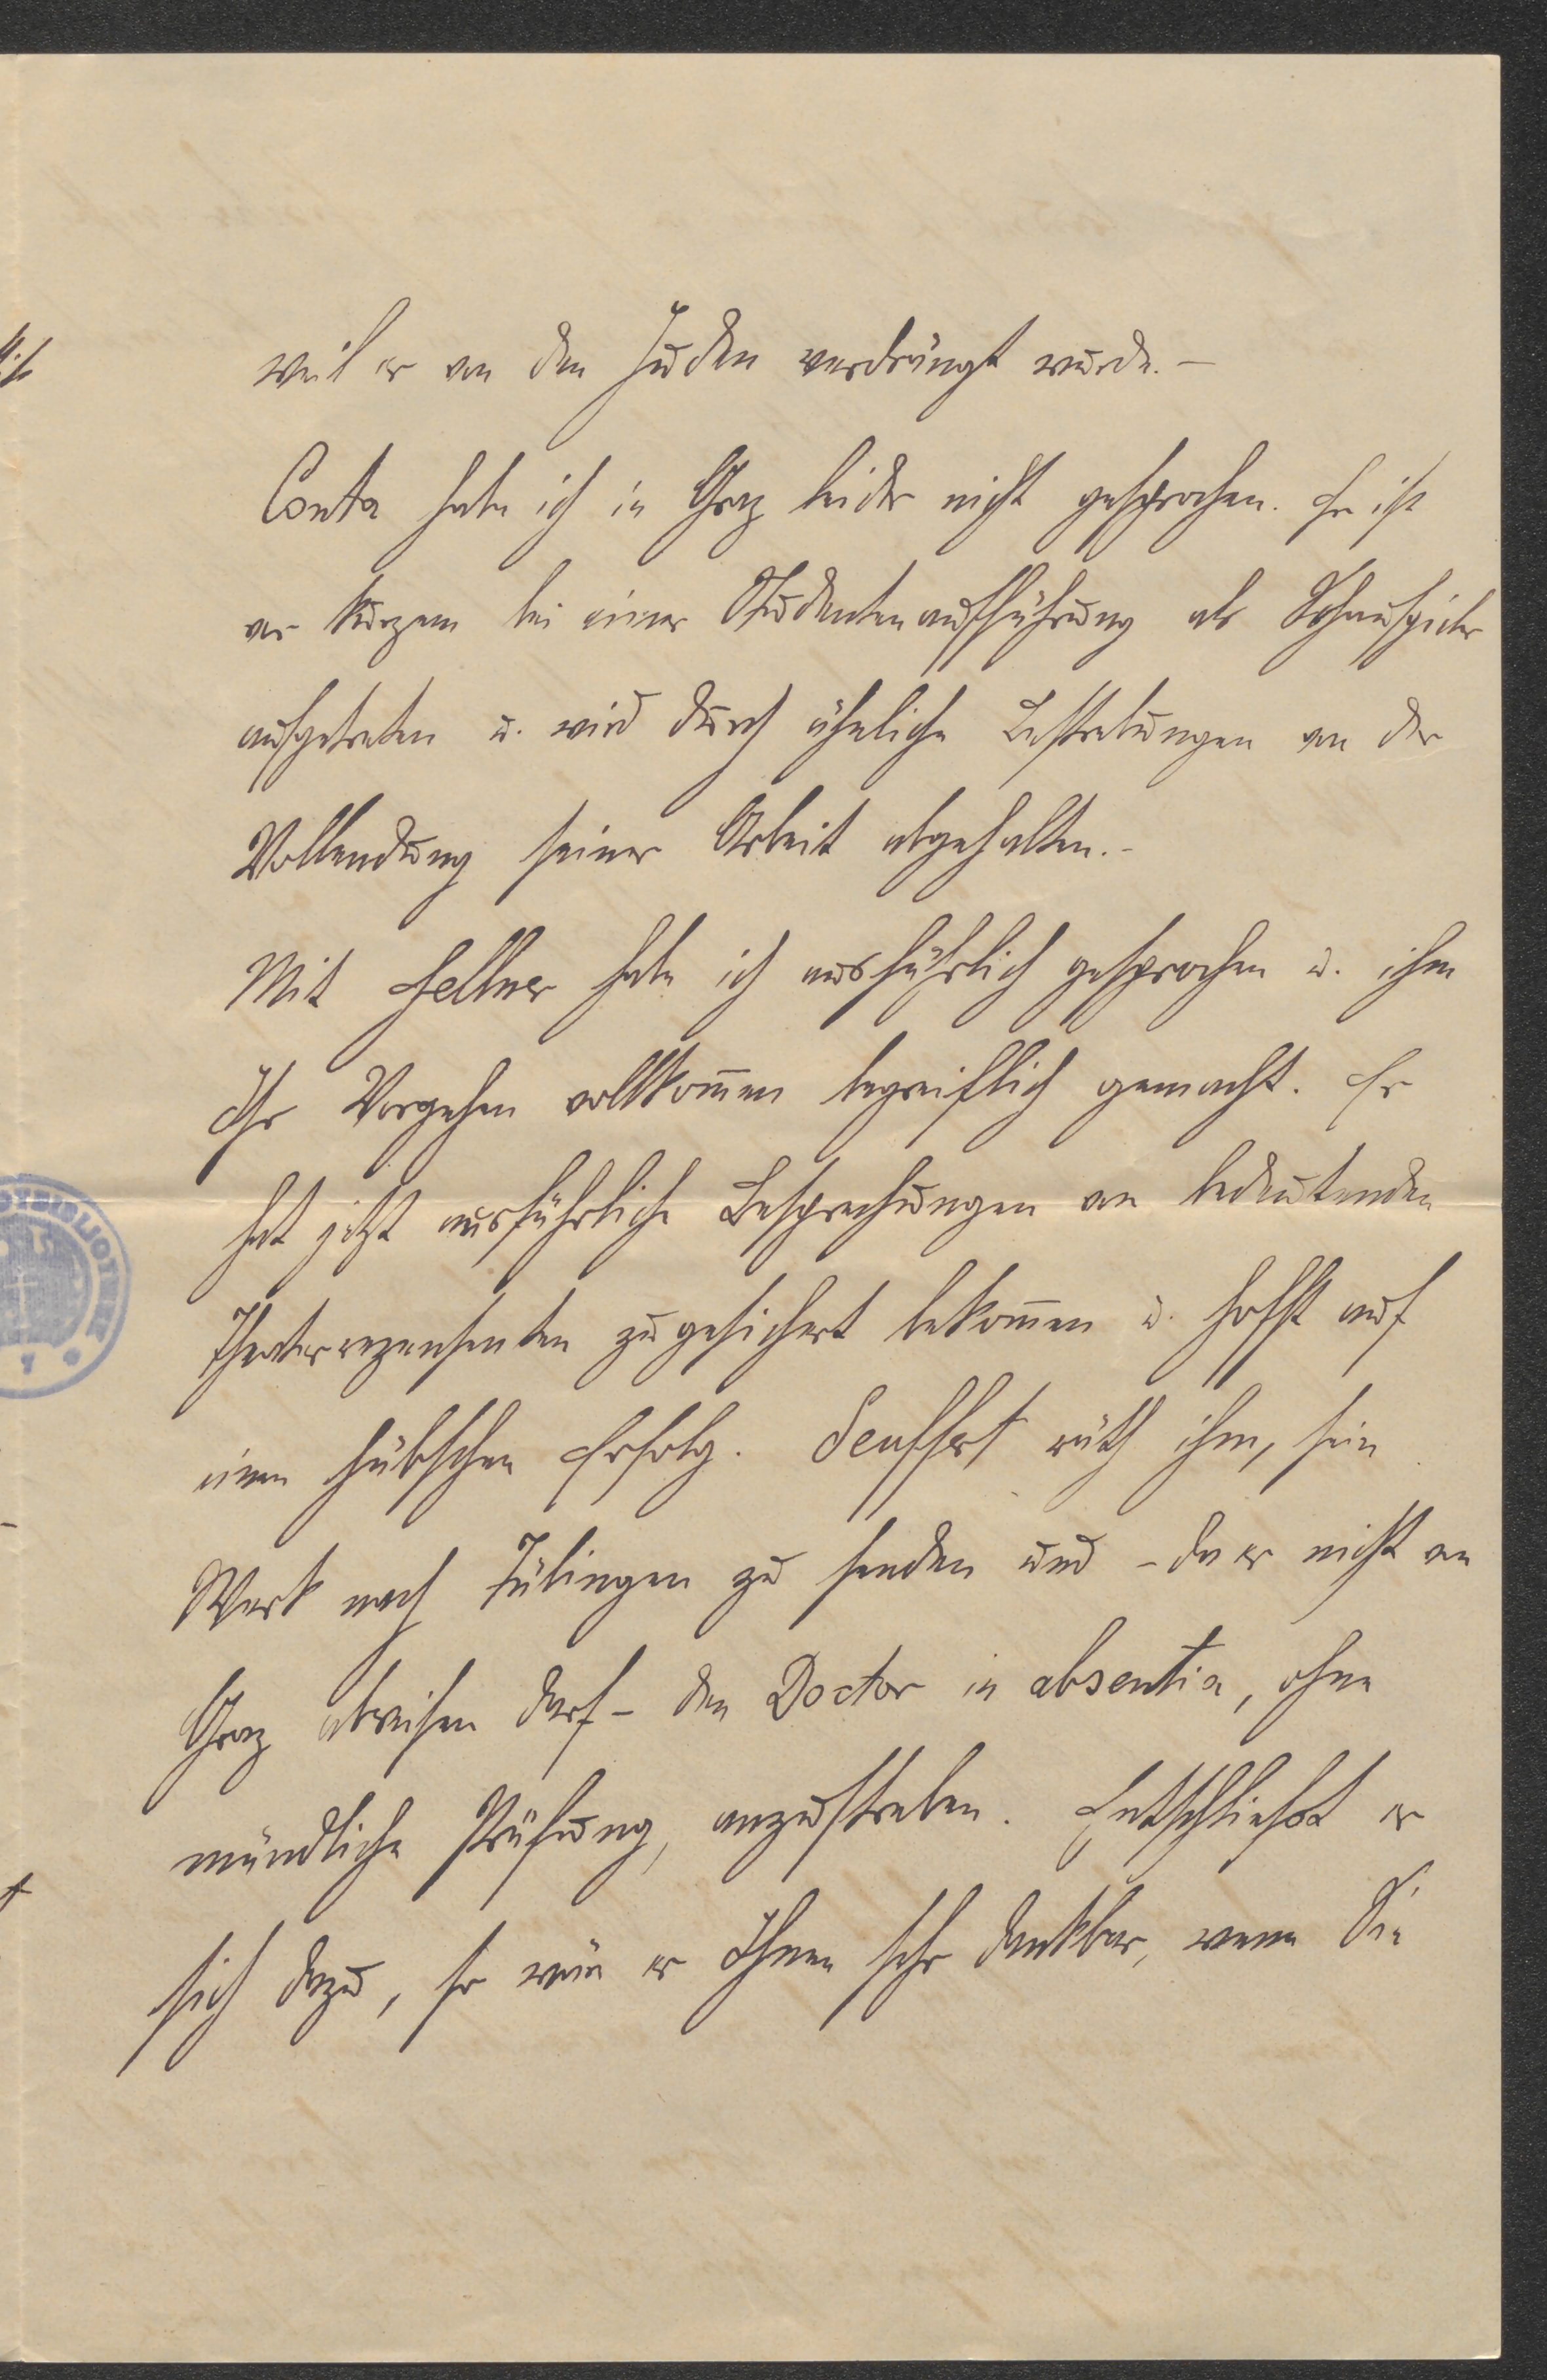 weil er von den Juden verdrängt wurde. –
Conta habe ich in Graz leider nicht gesprochen. Er ist
vor kurzem bei einer Studentenaufführung als Schauspieler
aufgetreten u. wird durch ähnliche Bestrebungen von der
Vollendung seiner Arbeit abgehalten. –
Mit Fellner habe ich ausführlich gesprochen u. ihm
Ihr Vorgehen vollkom̅en begreiflich gemacht. Er
hat jetzt ausführliche Besprechungen von bedeutenden
Theaterrezensenten zugesichert bekom̅en u. hofft auf
einen hübschen Erfolg. Seuffert räth ihm, sein
Werk nach Tübingen zu senden und – da er nicht von
Graz abreisen darf – den Doctor in absentia, ohne
mündliche Prüfung, anzustreben. Entschließt er
sich dazu, so wäre er Ihnen sehr dankbar, wenn Sie